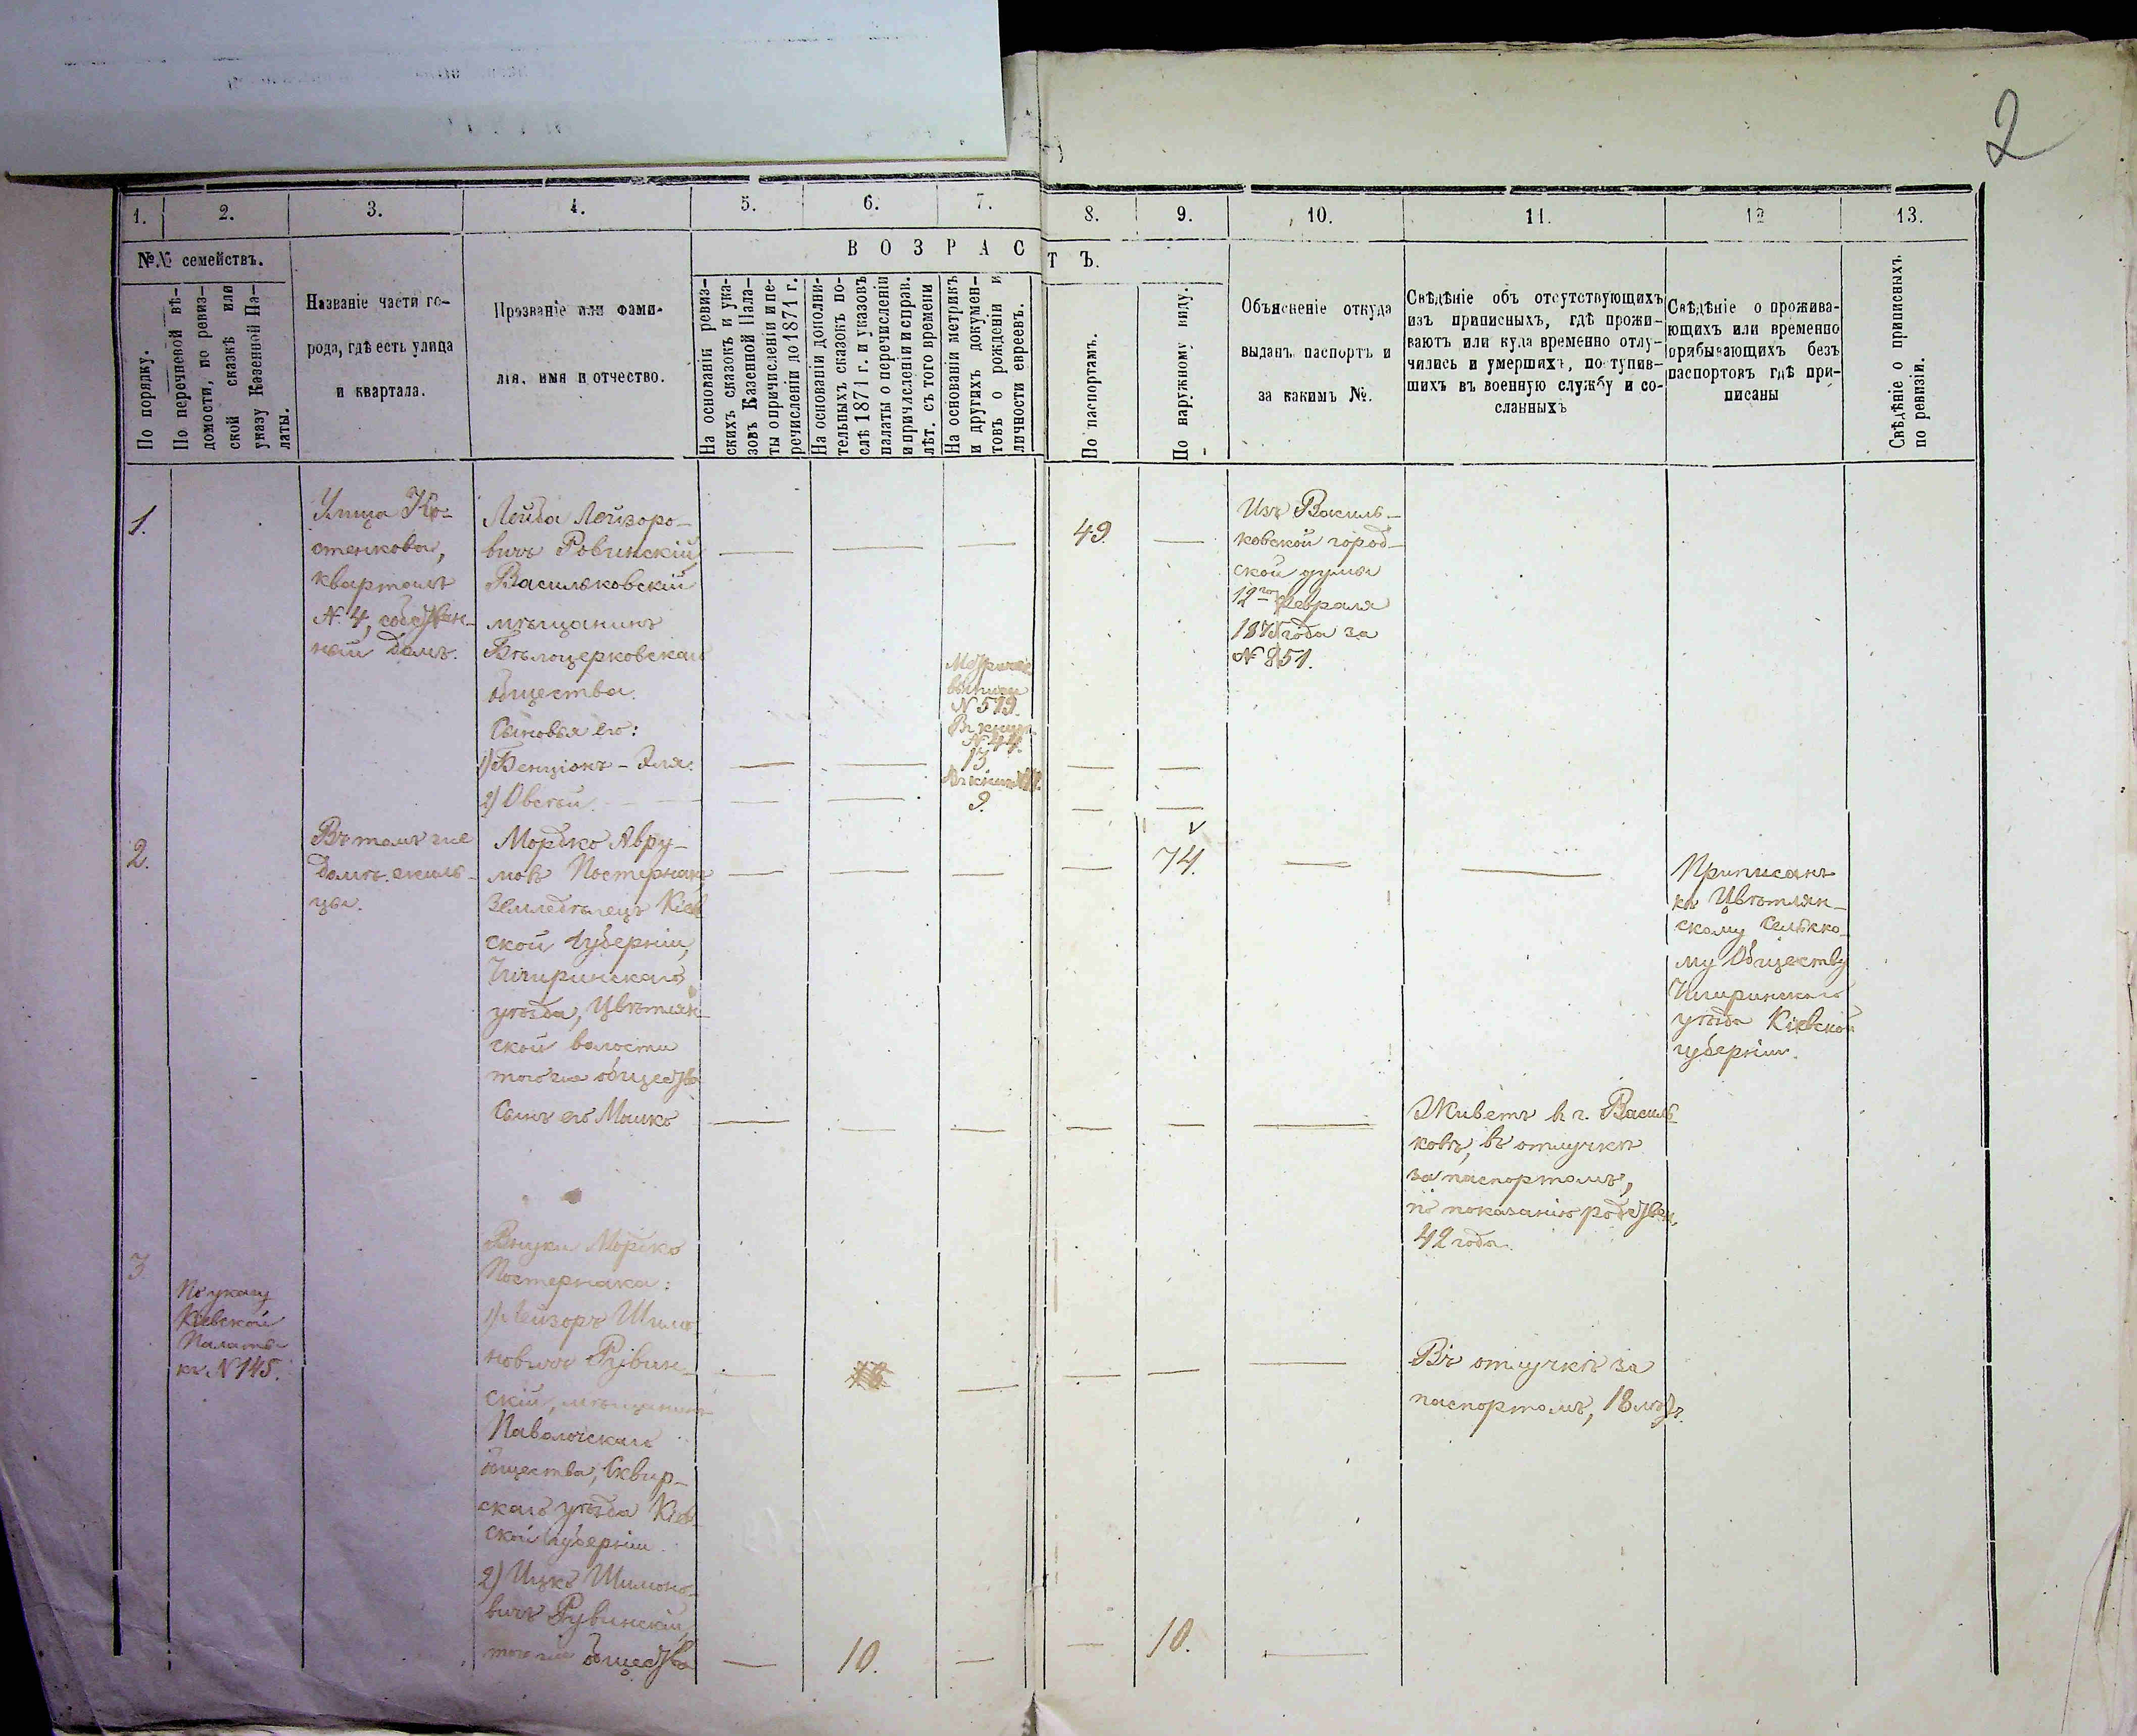 2
1.
2.
3.
4.
5.
6.
7.
8.
9.
10.
11.
12
13.
№№ семействъ.
ВОЗРАСТЪ.
По порядку.
По перечневой вѣ-
домости, по ревиз-
ской сказкѣ или
указу Казенной Па-
латы.
Названіе части го-
рода, гдѣ есть улица
и квартала.
Прозваніе или фами-
лія, имя и отчество.
На основаніи ревиз-
скихъ сказокъ и ука-
зовъ Казенной Пала-
ты о причисленіи и пе-
речисленіи до 1871 г.
На основаніи дополни-
тельныхъ сказокъ по-
слѣ 1871 г. и указовъ
палаты о перечисленіи
и причисленіи и справ.
лѣт. съ того времени
На основаніи метрикъ
и другихъ докумен-
товъ о рожденіи и
личности евреевъ.
По паспортамъ.
По наружному виду.
Объясненіе откуда
выданъ паспортъ и
за какимъ №.
Свѣдѣніе объ отсутствующихъ
изъ приписныхъ, гдѣ прожи-
ваютъ или куда временно отлу-
чились и умершихъ, поступив-
шихъ въ военную службу и со-
сланныхъ
Свѣдѣніе о прожива-
ющихъ или временно
прибывающихъ безъ
паспортовъ гдѣ при-
писаны
Свѣдѣніе о приписныхъ
по ревизіи.
1.
Улица Ко-
стенкова,
кварталъ
№ 4, собствен-
ный домъ.
Лейба Лейзоро-
вичъ Ровинскій,
Васильковскій
мѣщанинъ
Бѣлоцерковскаго
общества.
Сыновья его:
1) Бенціонъ - Эля.
2) Овсѣй.
№ 519.
№ 44.
13
9.
49.
Изъ Василь-
ковской город-
ской думы
12го Февраля
187 года за
№ 851.
2.
Въ томъ же
домѣ жиль-
цы.
Мордко Авру-
мовъ Постернакъ
земледѣлецъ Кіев
ской губерніи,
Чигиринскаго
уѣзда, Цвѣтлян-
ской волости
того же общества
Сынъ его Мошко
74.
Приписанъ
къ Цвѣтлян-
скому сельско-
му Обществу
Чигиринскаго
уѣзда Кіевской
губерніи.
Живетъ в г. Василь
ковѣ, въ отлучкѣ
за паспортомъ,
по показанію родствен.
42 года.
3
По указу
Кіевской
Палаты
къ № 145.
Внуки Мордко
Постернака:
1) Лейзоръ Шимо
новичъ Рувин-
скій, мѣщанинъ
Паволочскаго
общества, Сквир-
скаго уѣзда Кіев
ской губерніи.
2) Ицко Шимоно-
вичъ Рувинскій,
того же общества
18
Въ отлучкѣ за
паспортомъ, 18 лѣтъ.
10.
10.